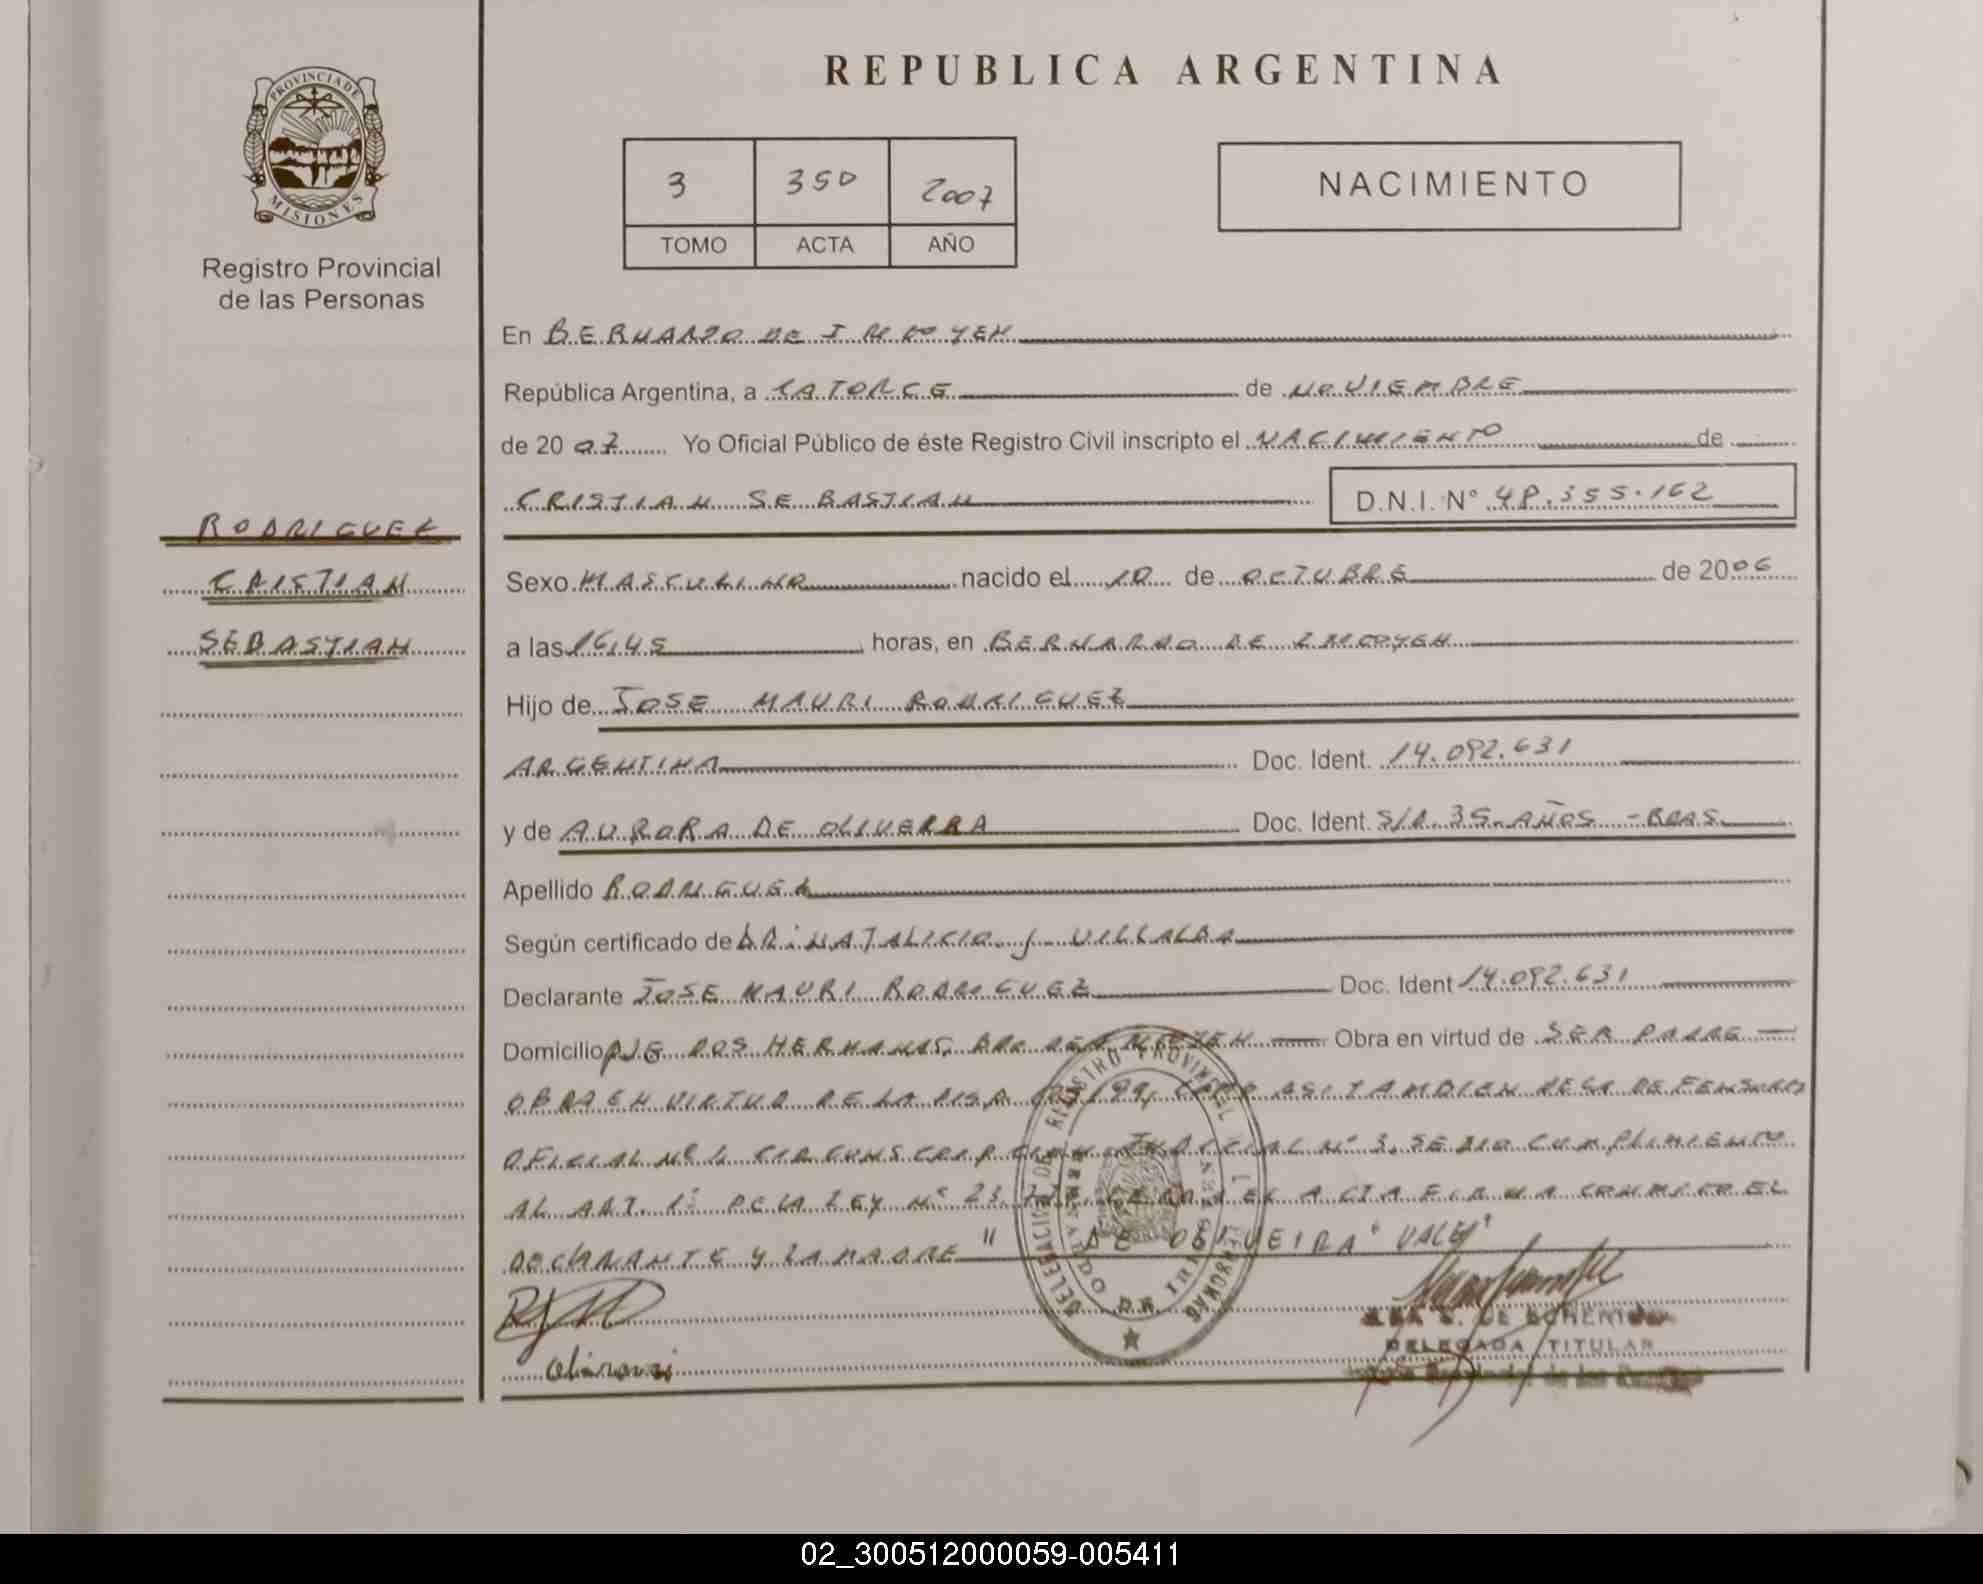 REPUBLICA ARGENTINA
PROVINCIA DE
MISIONES
Registro Provincial
de las Personas
3 350 2007
TOMO ACTA AÑO
NACIMIENTO
En BERNARDO DE IRIGOYEN
República Argentina, a CATORCE de NOVIEMBRE
de 20 07 Yo Oficial Público de éste Registro Civil inscripto el NACIMIENTO de
CRISTIAN SEBASTIAN D.N.I. N° 48.355.162
RODRIGUEZ
CRISTIAN
SEBASTIAN
Sexo MASCULINO nacido el 10 de OCTUBRE de 2006
a las 16,45 horas, en BERNARDO DE IRIGOYEN
Hijo de JOSE MAURI RODRIGUEZ
ARGENTINA Doc. Ident. 14.092.631
y de AURORA DE OLIVERRA Doc. Ident. S/D. 35 AÑOS - BRAS.
Apellido RODRIGUEZ
Según certificado de DR. NATALICIO J. VILLALBA
Declarante JOSE MAURI RODRIGUEZ Doc. Ident 14.092.631
Domicilio PJE DOS HERMANAS, BDO DE IRIGOYEN Obra en virtud de SER PADRE
OBRA EN VIRTUD DE LA DISP. COMO ASI TAMBIEN DE LA DEFENSORIA
OFICIAL Nº 1. CIRCUNSCRIPCION JUDICIAL Nº 3. SE DIO CUMPLIMIENTO
AL ART. 1º DE LA LEY Nº EL ACTA FIRMA CONMIGO EL
DECLARANTE Y LA MADRE " DE OLIVEIRA" VALE"
DELEGACION DE REGISTRO PROVINCIAL DE LAS PERSONAS
BERNARDO DE IRIGOYEN
DELEGADA TITULAR
02_300512000059-005411